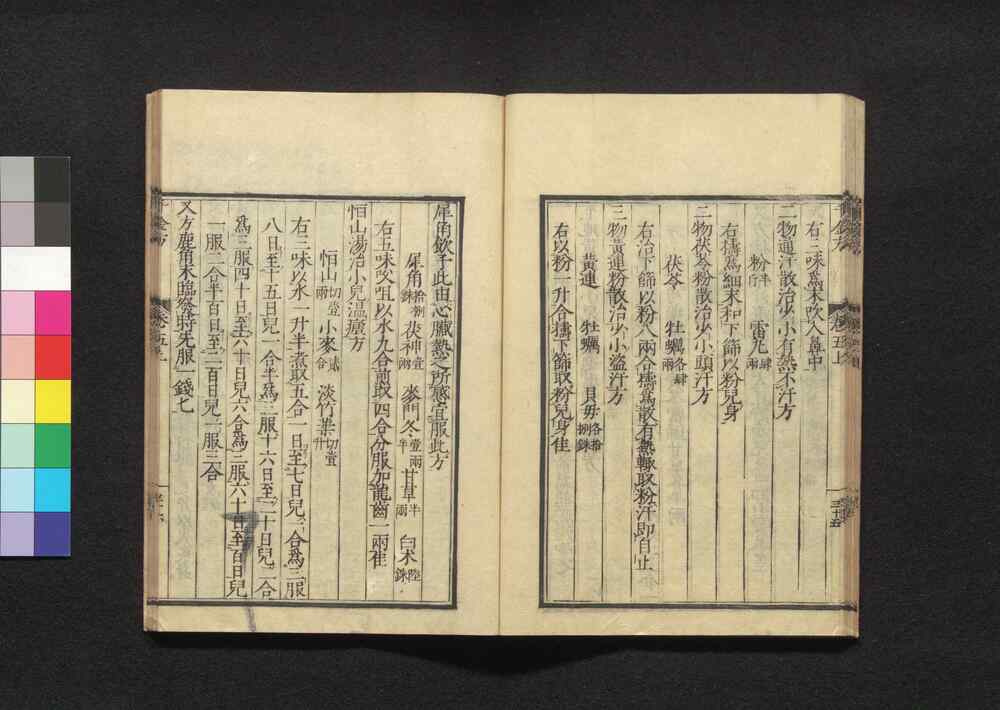 右三味爲末吹入鼻中
二物通汗散治少小有熱不汗方
粉半斤 雷丸肆兩
右擣爲細末和下篩以粉兒身
二物茯苓粉散治少小頭汗方
茯苓 牡蠣各肆兩
右治下篩以粉八兩合擣爲散有熱輙取粉汗即自止
三物黃連粉散治少小盜汗方
黃連 牡蠣 貝母各拾捌銖
右以粉一升合擣下篩取粉兒身佳
犀角飲子此由心臟熱之所感宜服此方
犀角拾捌銖 茯神壹兩 麥門冬壹兩半 甘草半兩 白术陸銖
右五味㕮咀以水九合煎取四合分服加龍齒一兩佳
恒山湯治小兒温瘧方
恒山切壹兩 小麥貳合 淡竹葉切壹升
右三味以水一升半煮取五合一日至七日兒一合爲三服
八日至十五日兒一合半爲三服十六日至二十日兒二合
爲三服四十日至六十日兒六合爲三服六十日至百日兒
一服二合半百日至二百日兒一服三合
又方鹿角末臨發時先服一錢匕
卷五上
三十五